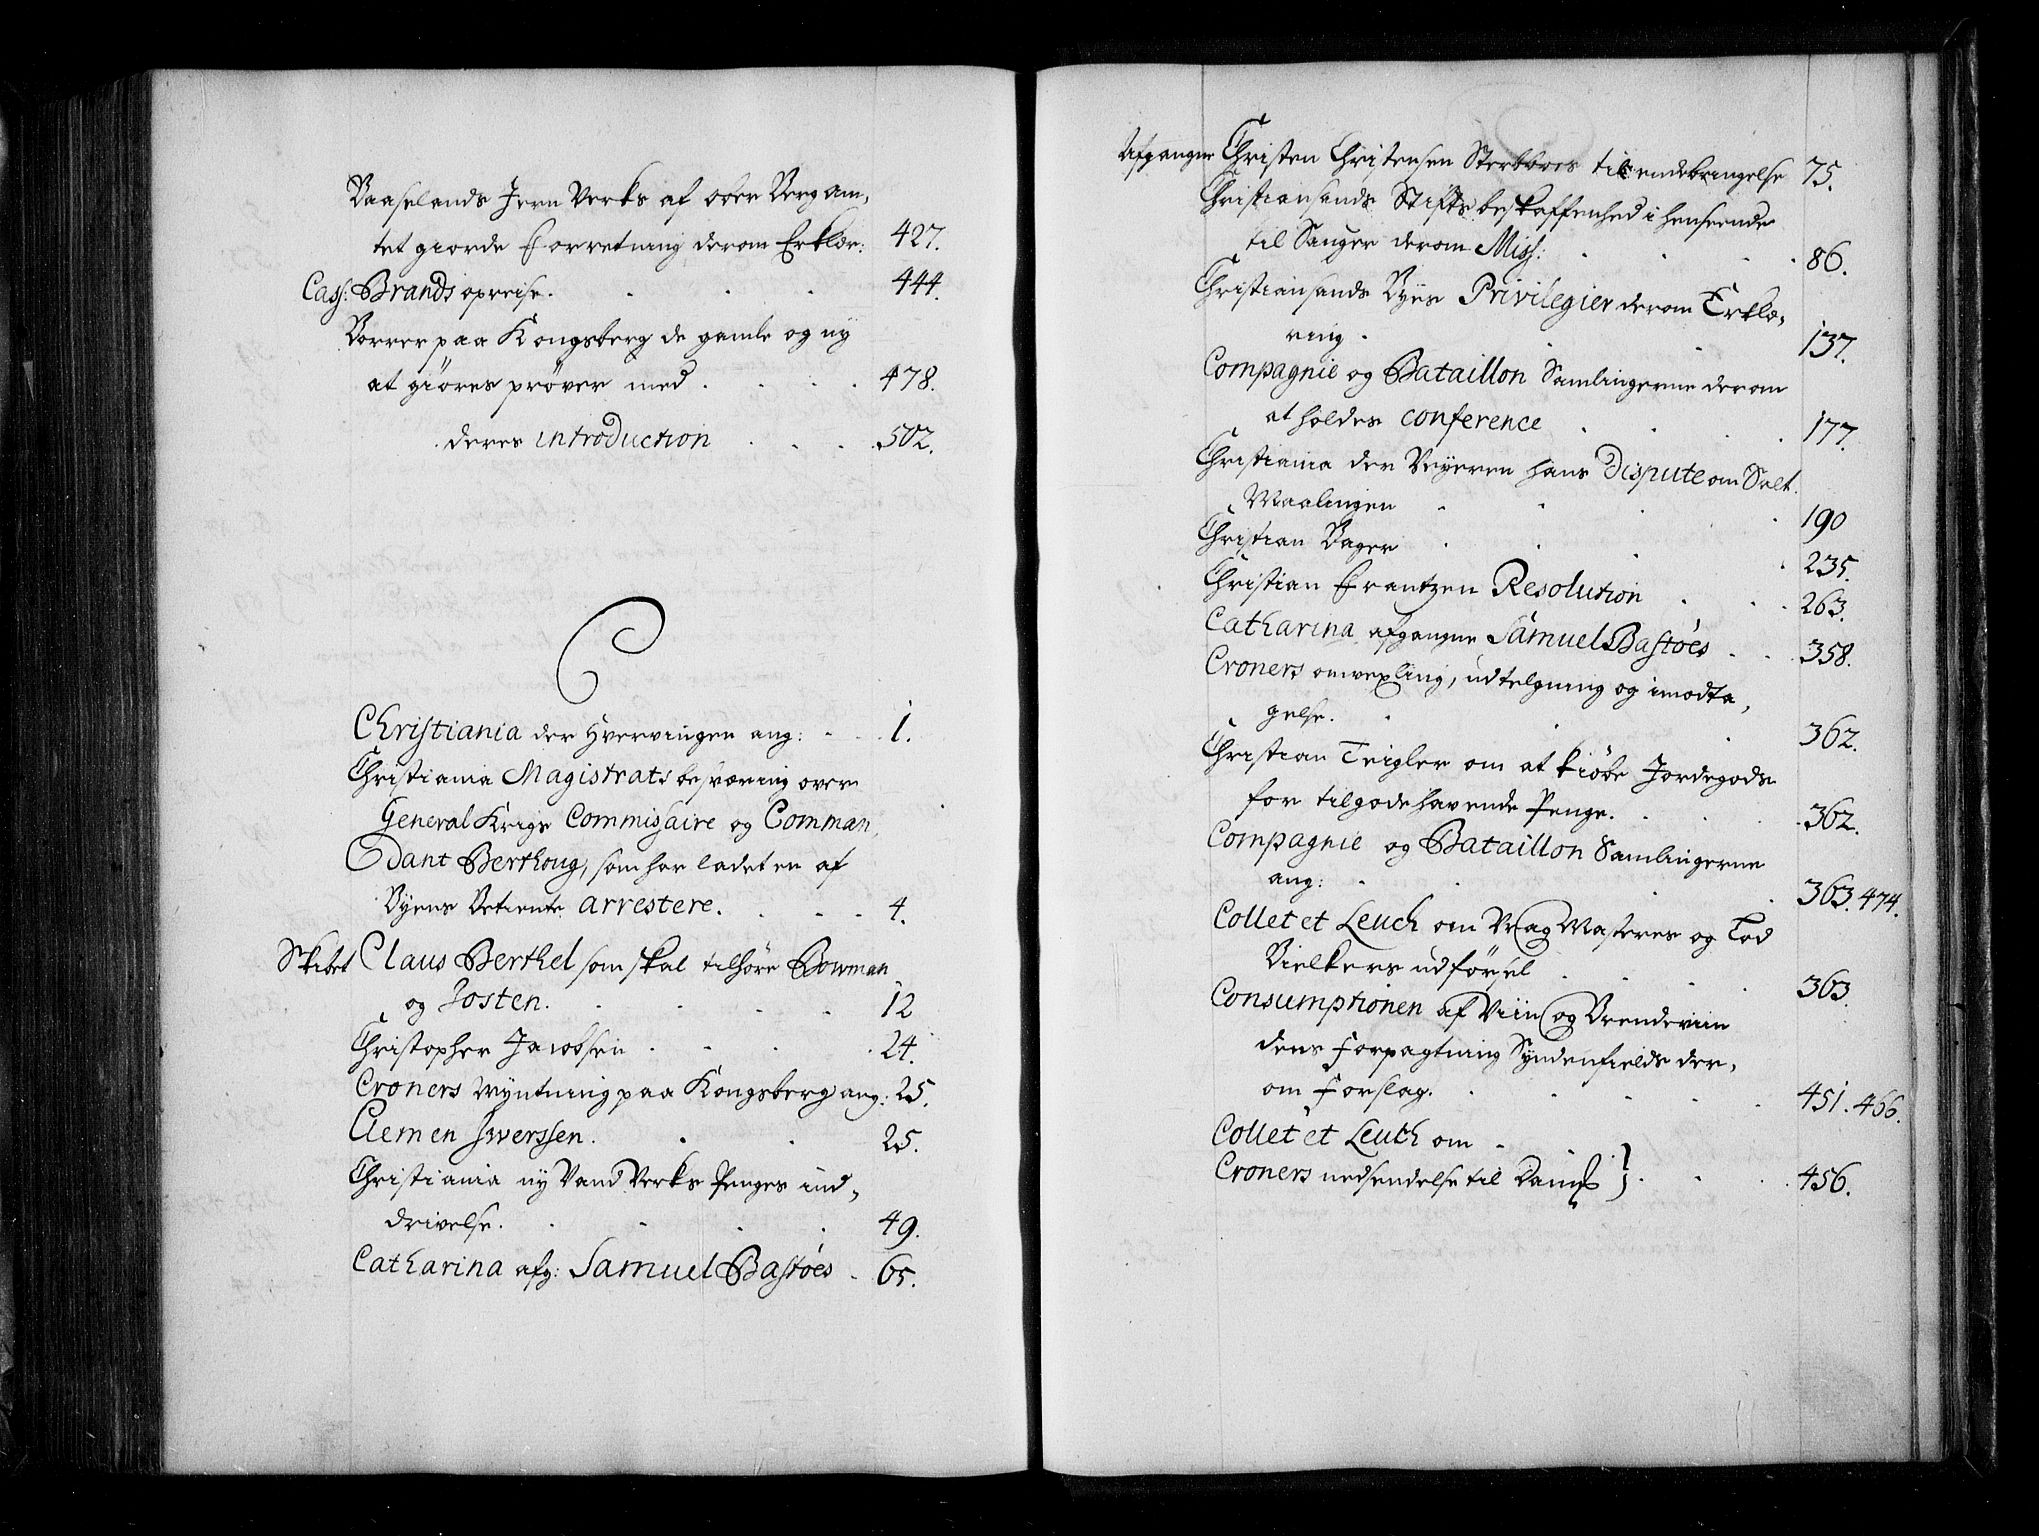 Baaselands Jern Verks af ober Berg am-
tet giorde Forretning derom Erklær: 427.
Cass: Brands opreise. 444.
Borrer paa Kongsberg de gamle og ny
at giøres prøver med 478.
deres introduction 502.
C
Christiania der Hvervingen ang: 1.
Christiania Magistrats besværing over
General Krigs Commissaire og Comman,
Dant Berthoug, som har ladet en af
Byens Betiente arrestere. 4.
Skibet Claus Berthel som skal tilhøre Bowman
og Josten. 12
Christopher Jacobsen 24.
Croners Myntning paa Kongsberg ang: 25.
Clemen Iwerssen. 25.
Christiania ny Vand Verks Penges ind-
drivelse. 49.
Catharina afg: Samuel Bastøes 65.
Afgangne Christen Christensen Sterbboes til endebringelse 75.
Christiansands Stifts beskaffenhed i henseende
til Sanger derom Miss: 86.
Christiansands Byes Privilegier derom Erklæ-
ring 137.
Compagnie og Bataillon Samlingerne derom
at holdes conference 177.
Christiania der Veyeren hans Dispute om Salt
Maalingen 190
Christian Bager 235.
Christian Frantzen Resolution 263.
Catharina afgangne Samuel Bastøes 358.
Croners omvexling, udtelgning og imodta,
gelse. 362.
Christian Teigler om at kiøbe Jordegods
for tilgodehavende Penge. 362.
Compagnie og Bataillon Samlingerne
ang: 363. 474.
Collet et Leuch om Vrag Masteres og Tod
Bielkers udførsel 363.
Consumptionen af Viin og Brendeviin
dens Forpagtning Syndenfields der-
om Forslag. 451. 466.
Collet et Leuch om
Croners nedsendelse til Danm 456.